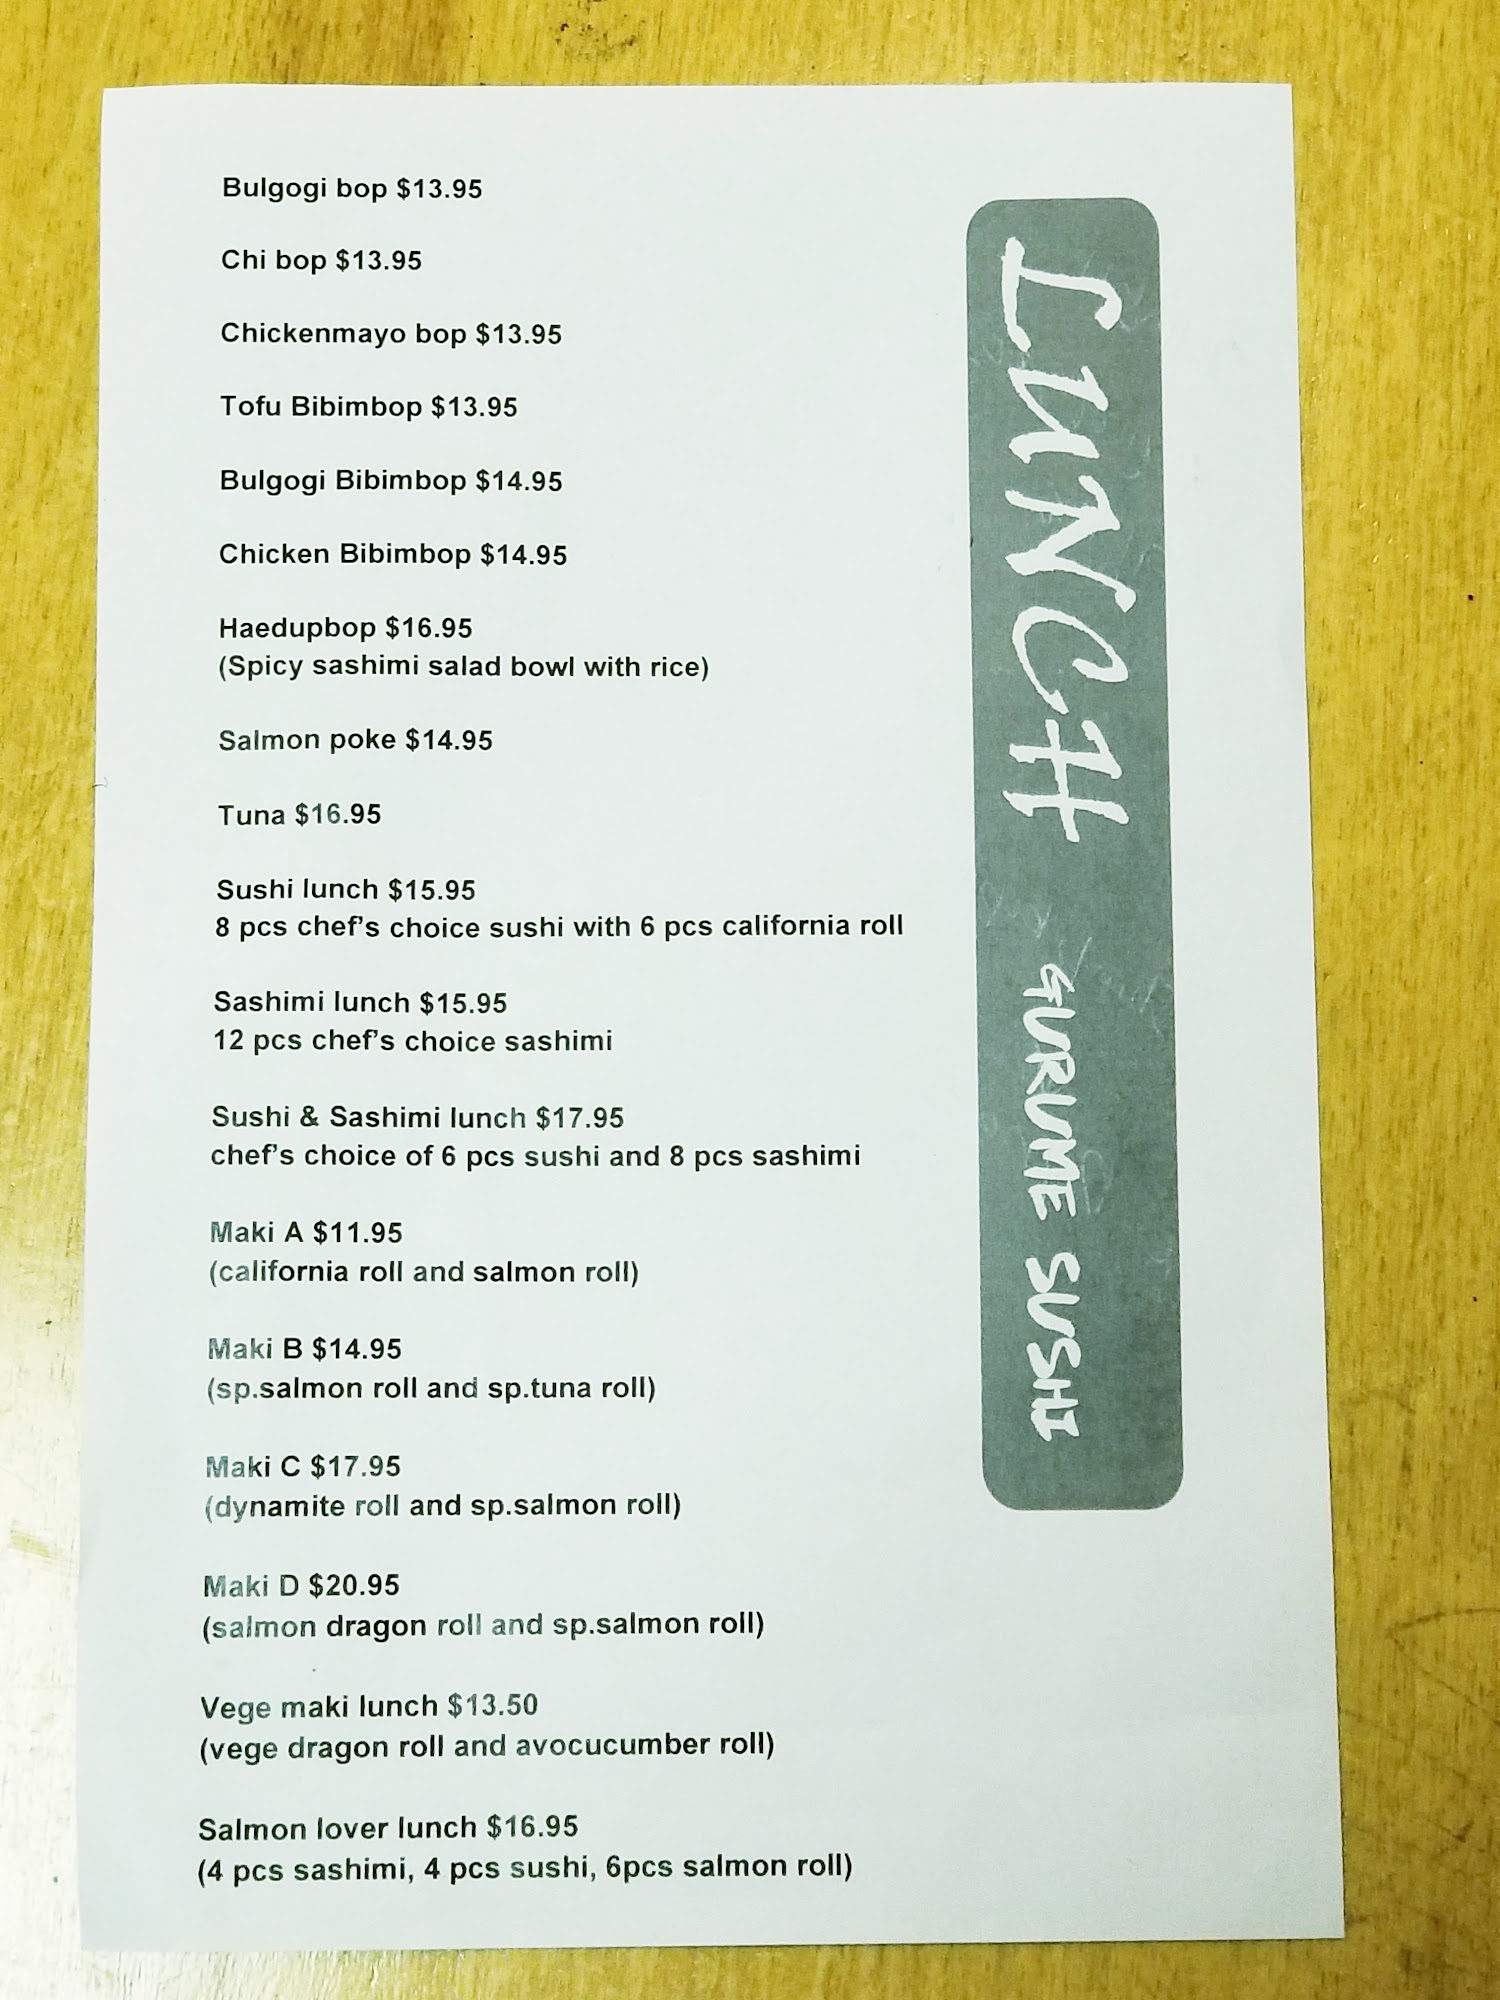 Bulgogi bop $13.95
Chi bop $13.95
Chickenmayo bop $13.95
Tofu Bibimbop $13.95
Bulgogi Bibimbop $14.95
Chicken Bibimbop $14.95
Haedupbop $16.95
(Spicy sashimi salad bowl with rice)
Salmon poke $14.95
Tuna $16.95
Sushi lunch $15.95
8 pcs chef’s choice sushi with 6 pcs california roll
Sashimi lunch $15.95
12 pcs chef’s choice sashimi
Sushi & Sashimi lunch $17.95
chef’s choice of 6 pcs sushi and 8 pcs sashimi
Maki A $11.95
(california roll and salmon roll)
Maki B $14.95
(sp.salmon roll and sp.tuna roll)
Maki C $17.95
(dynamite roll and sp.salmon roll)
Maki D $20.95
(salmon dragon roll and sp.salmon roll)
Vege maki lunch $13.50
(vege dragon roll and avocucumber roll)
Salmon lover lunch $16.95
(4 pcs sashimi, 4 pcs sushi, 6pcs salmon roll)
LUNCH GURUME SUSHI